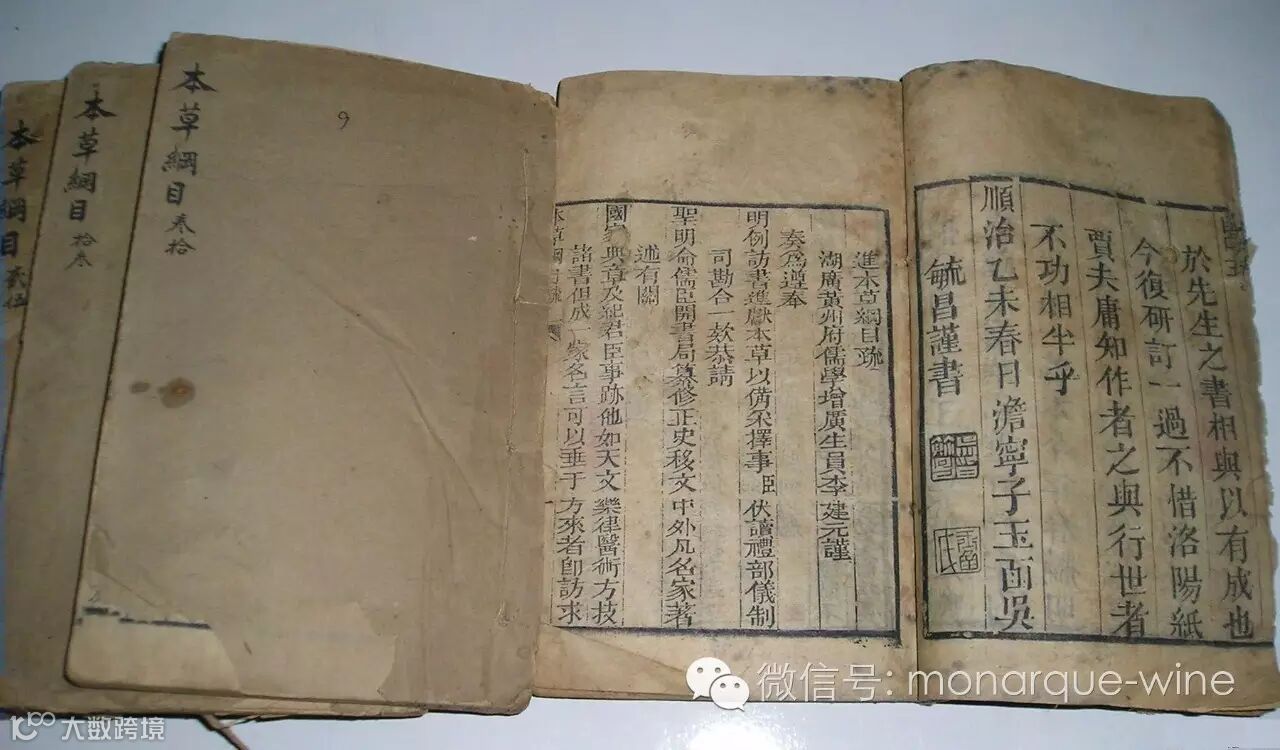 本草綱目 卷拾
9
本草綱目 拾叁
本草綱目
於先生之書相與以有成也
今復研訂一過不惜洛陽紙
賈夫庸知作者之與行世者
不功相半乎
順治乙未春日澹寧子玉函吳
毓昌謹書
進本草綱目疏
湖廣黃州府儒學增廣生員李建元謹
奏為遵奉
明例訪書進獻本草以俻采擇事臣伏讀禮部儀制
司勘合一欵恭請
聖明命儒臣開書局纂修正史移文中外凡名家著
述有關
國家典章及紀君臣事跡他如天文樂律醫術方技
諸書但成一家各言可以垂于方來者卽訪求
本草綱目疏
微信号: monarque-wine
大数跨境